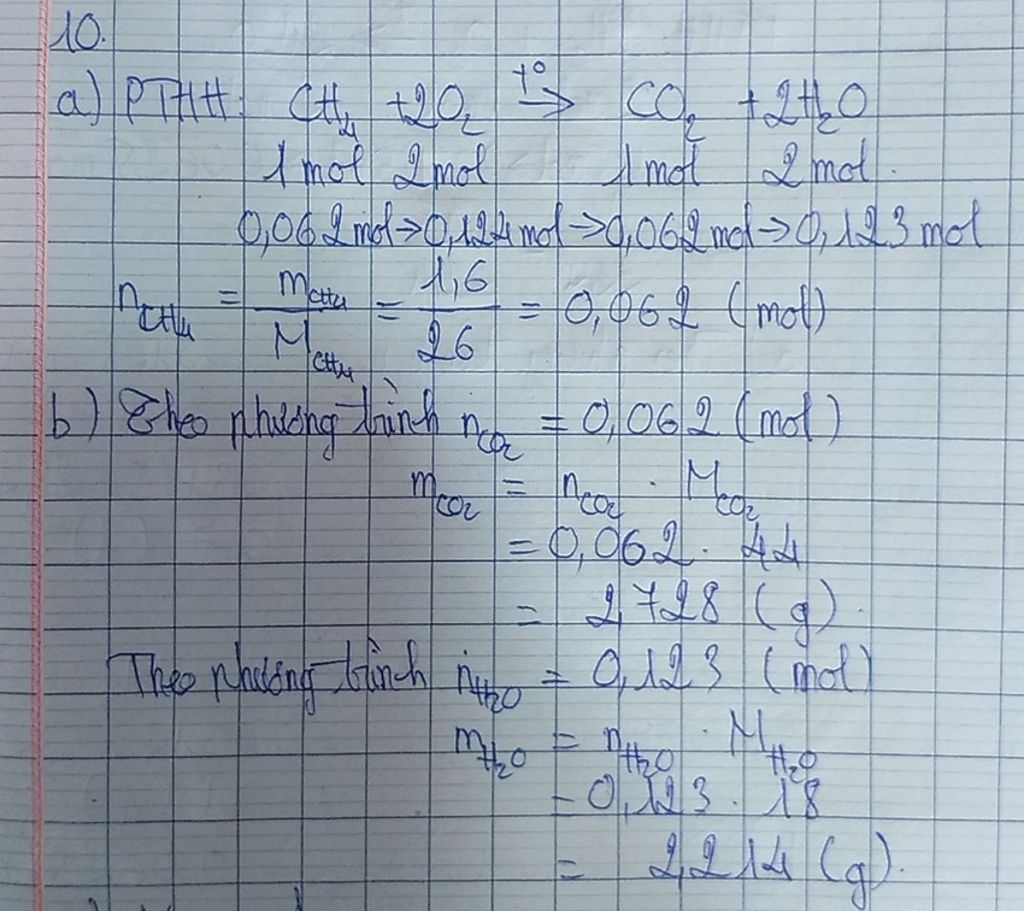 10.
a) PTHH: CH₄ + 2O₂ t°→ CO₂ + 2H₂O
1 mol 2 mol 1 mol 2 mol.
0,062 mol → 0,124 mol → 0,062 mol → 0,123 mol
n_CH₄ = m_CH₄ / M_CH₄ = 1,6 / 26 = 0,062 (mol)
b) Theo phương trình n_CO₂ = 0,062 (mol)
m_CO₂ = n_CO₂ . M_CO₂
= 0,062 . 44
= 2,728 (g).
Theo phương trình n_H₂O = 0,123 (mol)
m_H₂O = n_H₂O . M_H₂O
= 0,123 . 18
= 2,214 (g).